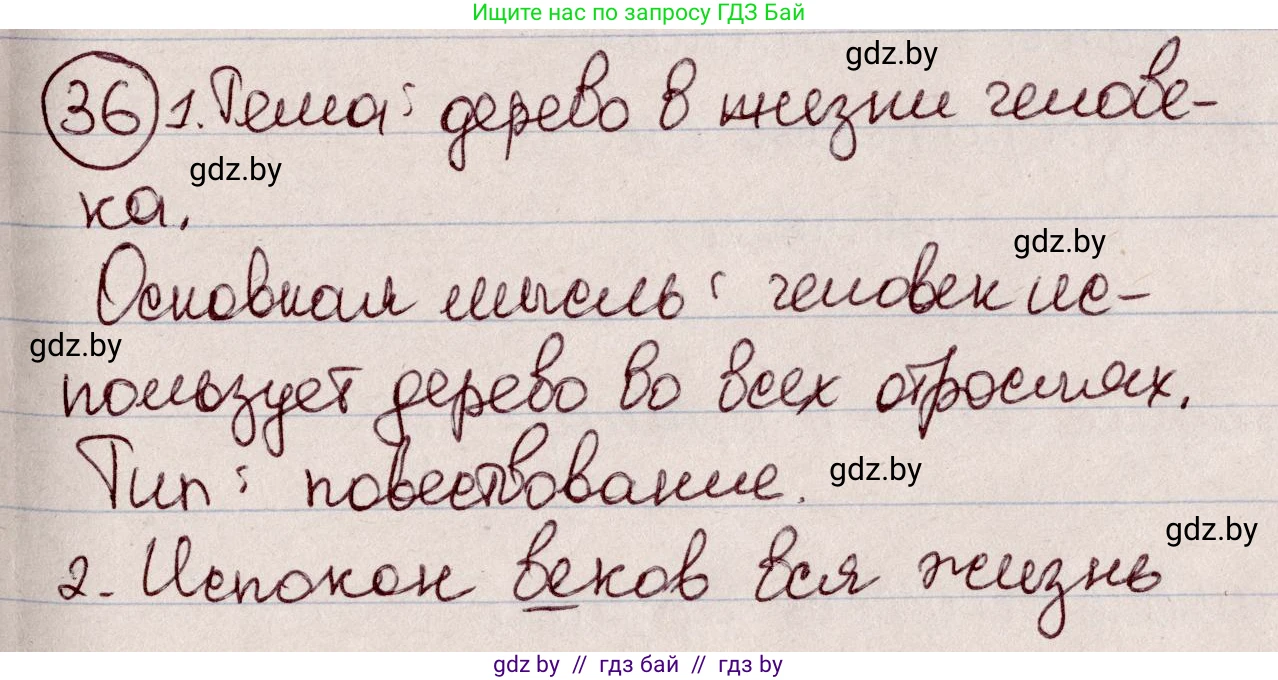 Ищите нас по запросу ГДЗ Бай
gdz.by
36 1. Тема: дерево в жизни челове-
gdz.by
ка.
gdz.by
Основная мысль: человек ис-
gdz.by
пользует дерево во всех отраслях.
Тип: повествование.
gdz.by
gdz.by
2. Испокон веков вся жизнь
gdz by // гдз бай // гдз by